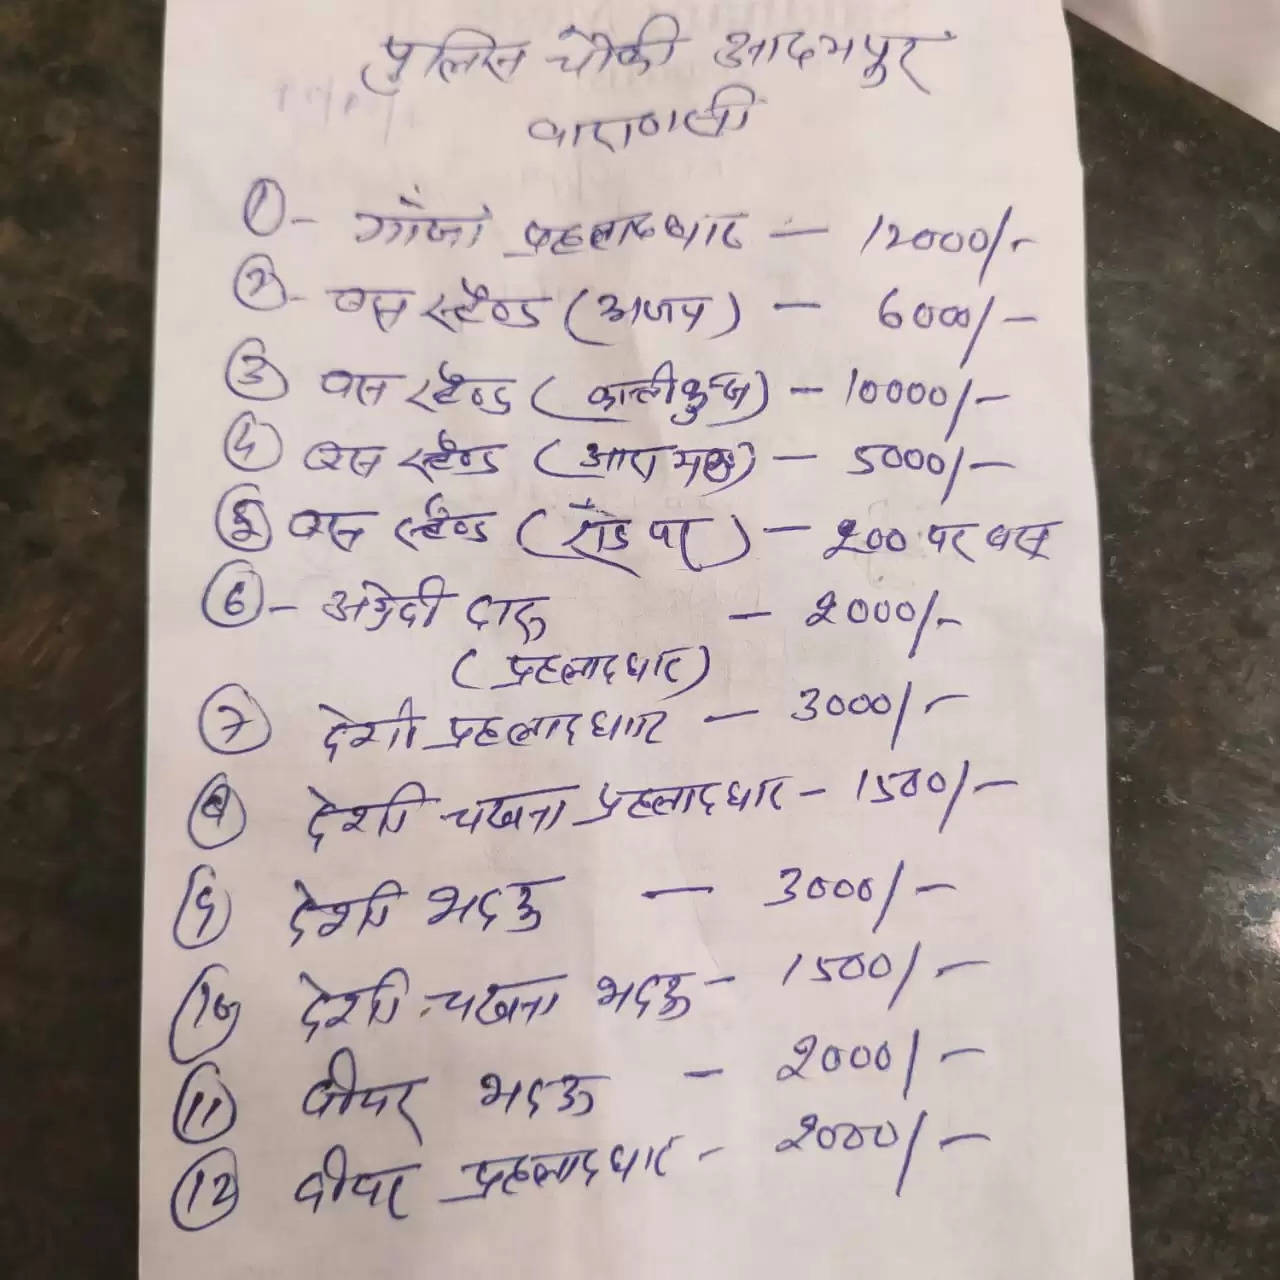 पुलिस चौकी आदमपुर
वाराणसी
① - गाँजा प्रहलादघाट — 12000/-
② - बस स्टैण्ड (अजय) — 6000/-
③ बस स्टैण्ड (कालीकुन्ज) — 10000/-
④ बस स्टैण्ड — 5000/-
⑤ बस स्टैण्ड (रोड पर) — 200 पर बस
⑥ - अंग्रेजी दारू — 2000/-
(प्रहलादघाट)
⑦ देशी प्रहलादघाट — 3000/-
⑧ देशी चखना प्रहलादघाट - 1500/-
⑨ देशी भदऊ — 3000/-
⑩ देशी चखना भदऊ - 1500/-
⑪ बीयर भदऊ - 2000/-
⑫ बीयर प्रहलादघाट - 2000/-